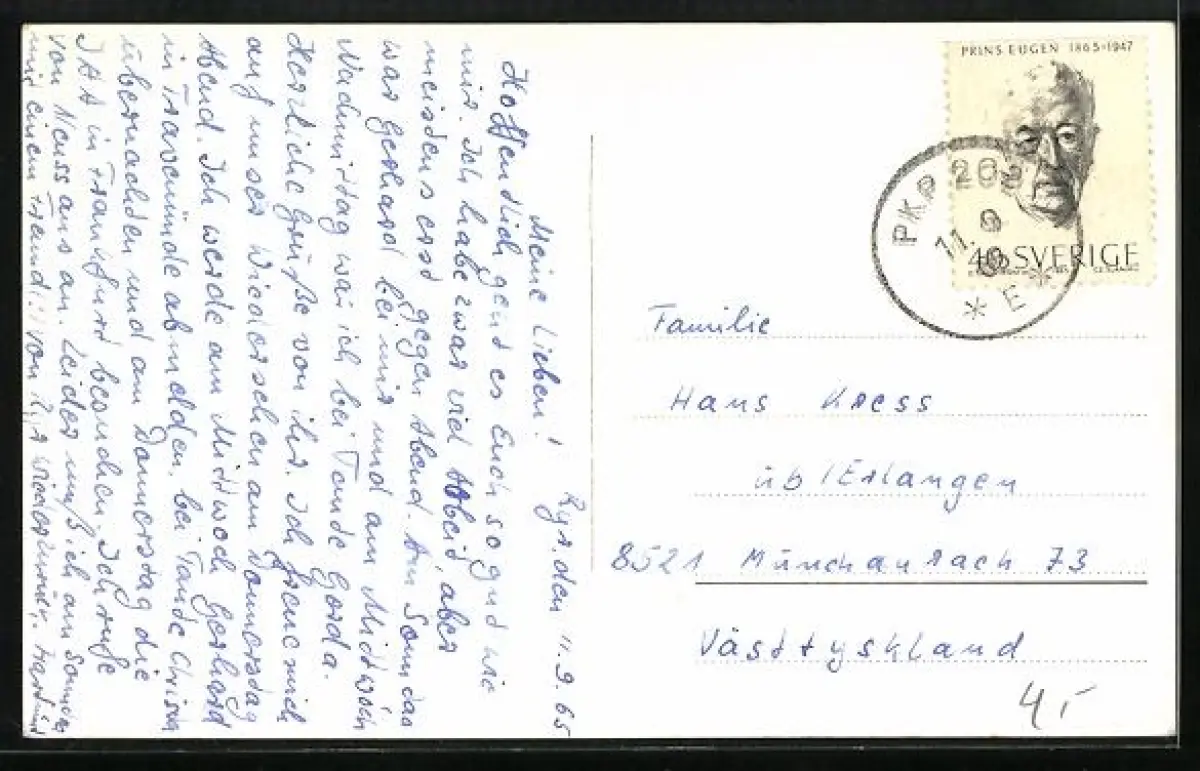 Ryr, den 11.9.65
Meine Lieben!
Hoffendlich gend es Euch so gud wie
mir. Ich habe zwar viel Arbeid, aber
meisdens ersd gegen Abend. Am Sonndag
war Gerhard bei mir und am Midtwoch
Nachmiddag war ich bei Tande Gerda.
Herzliche Grüße von ihr. Ich freue mich
auf unser Wiedersehen am Donnersdag
Abend. Ich werde am Midtwoch Gerhard
in Travemünde abmelden, bei Tande Chrisda
übernachden und am Donnersdag die
IAA in Frankfurd besuchen. Ich rufe
von Neuss aus an. Leider muß ich am
mid einem Freund von Ryr
PRINS EUGEN 1865-1947
40 SVERIGE
PKP 262
11. 9
65
* E *
Familie
Hans Kress
üb/Erlangen
8521 Münchaurach 73
Västtyskland
4,-